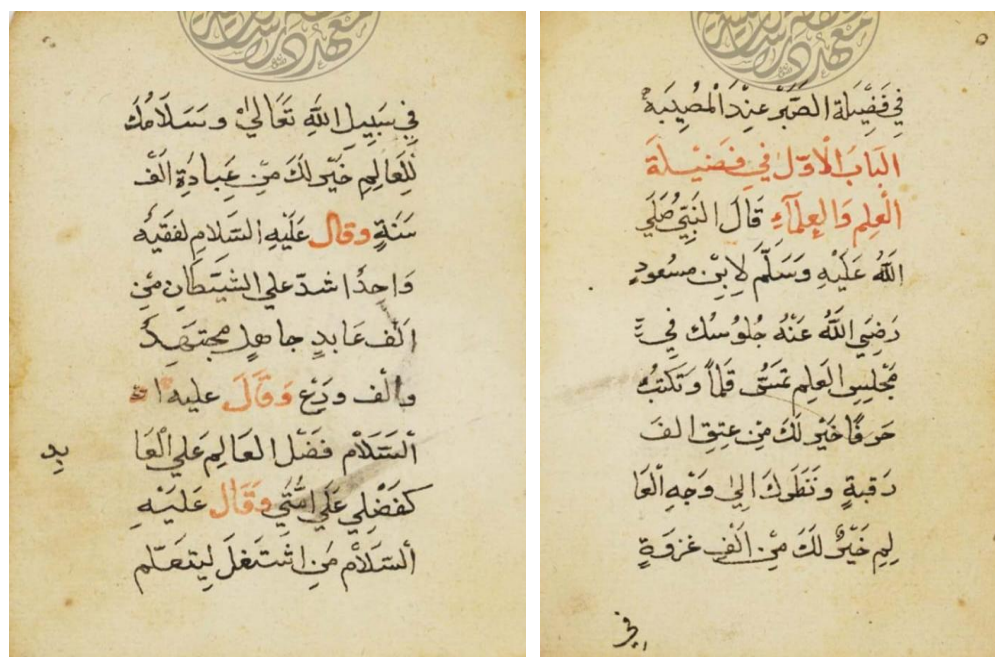 في فضيلة الصبر عند المصيبة
الباب الاول في فضيلة
العلم والعلماء قال النبي صلي
الله عليه وسلم لابن مسعود
رضي الله عنه جلوسك في
مجلس العلم تمس قلماً وتكتب
حرفًا خير لك من عتق الف
رقبةٍ ونظرك الي وجه العا
لم خير لك من الف غزوة
في
في سبيل الله تعالي وسلامك
للعالم خير لك من عبادة الف
سنةٍ وقال عليه السلام لفقيه
واحدًا شدّ علي الشيطان من
الف عابدٍ جاهل مجتهد
والف ورع وقال عليه
السلام فضل العالم علي العا
بد
كفضلي علي امتي وقال عليه
السلام من اشتغل ليتعلم